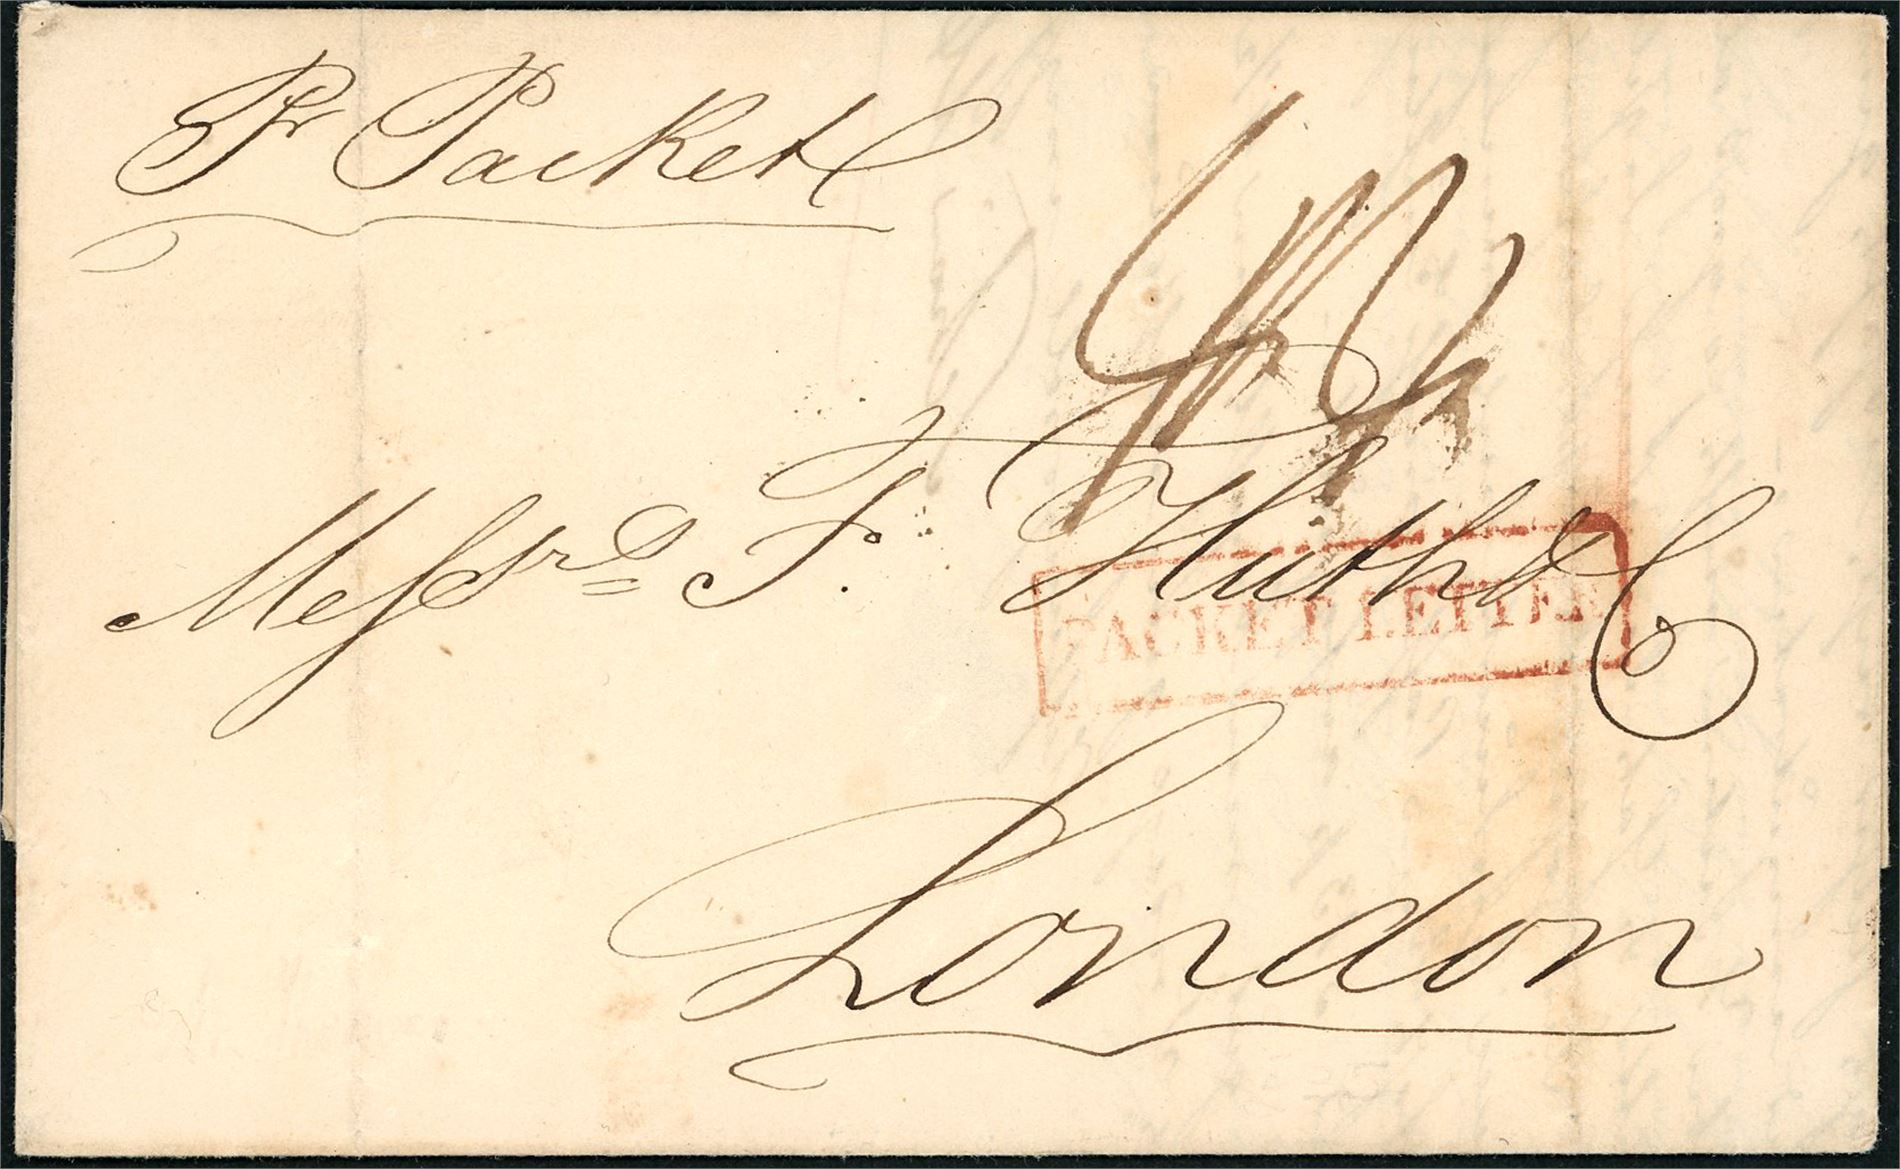 Pr Packet
Messrs F. Huth & Co
PACKET LETTER
London